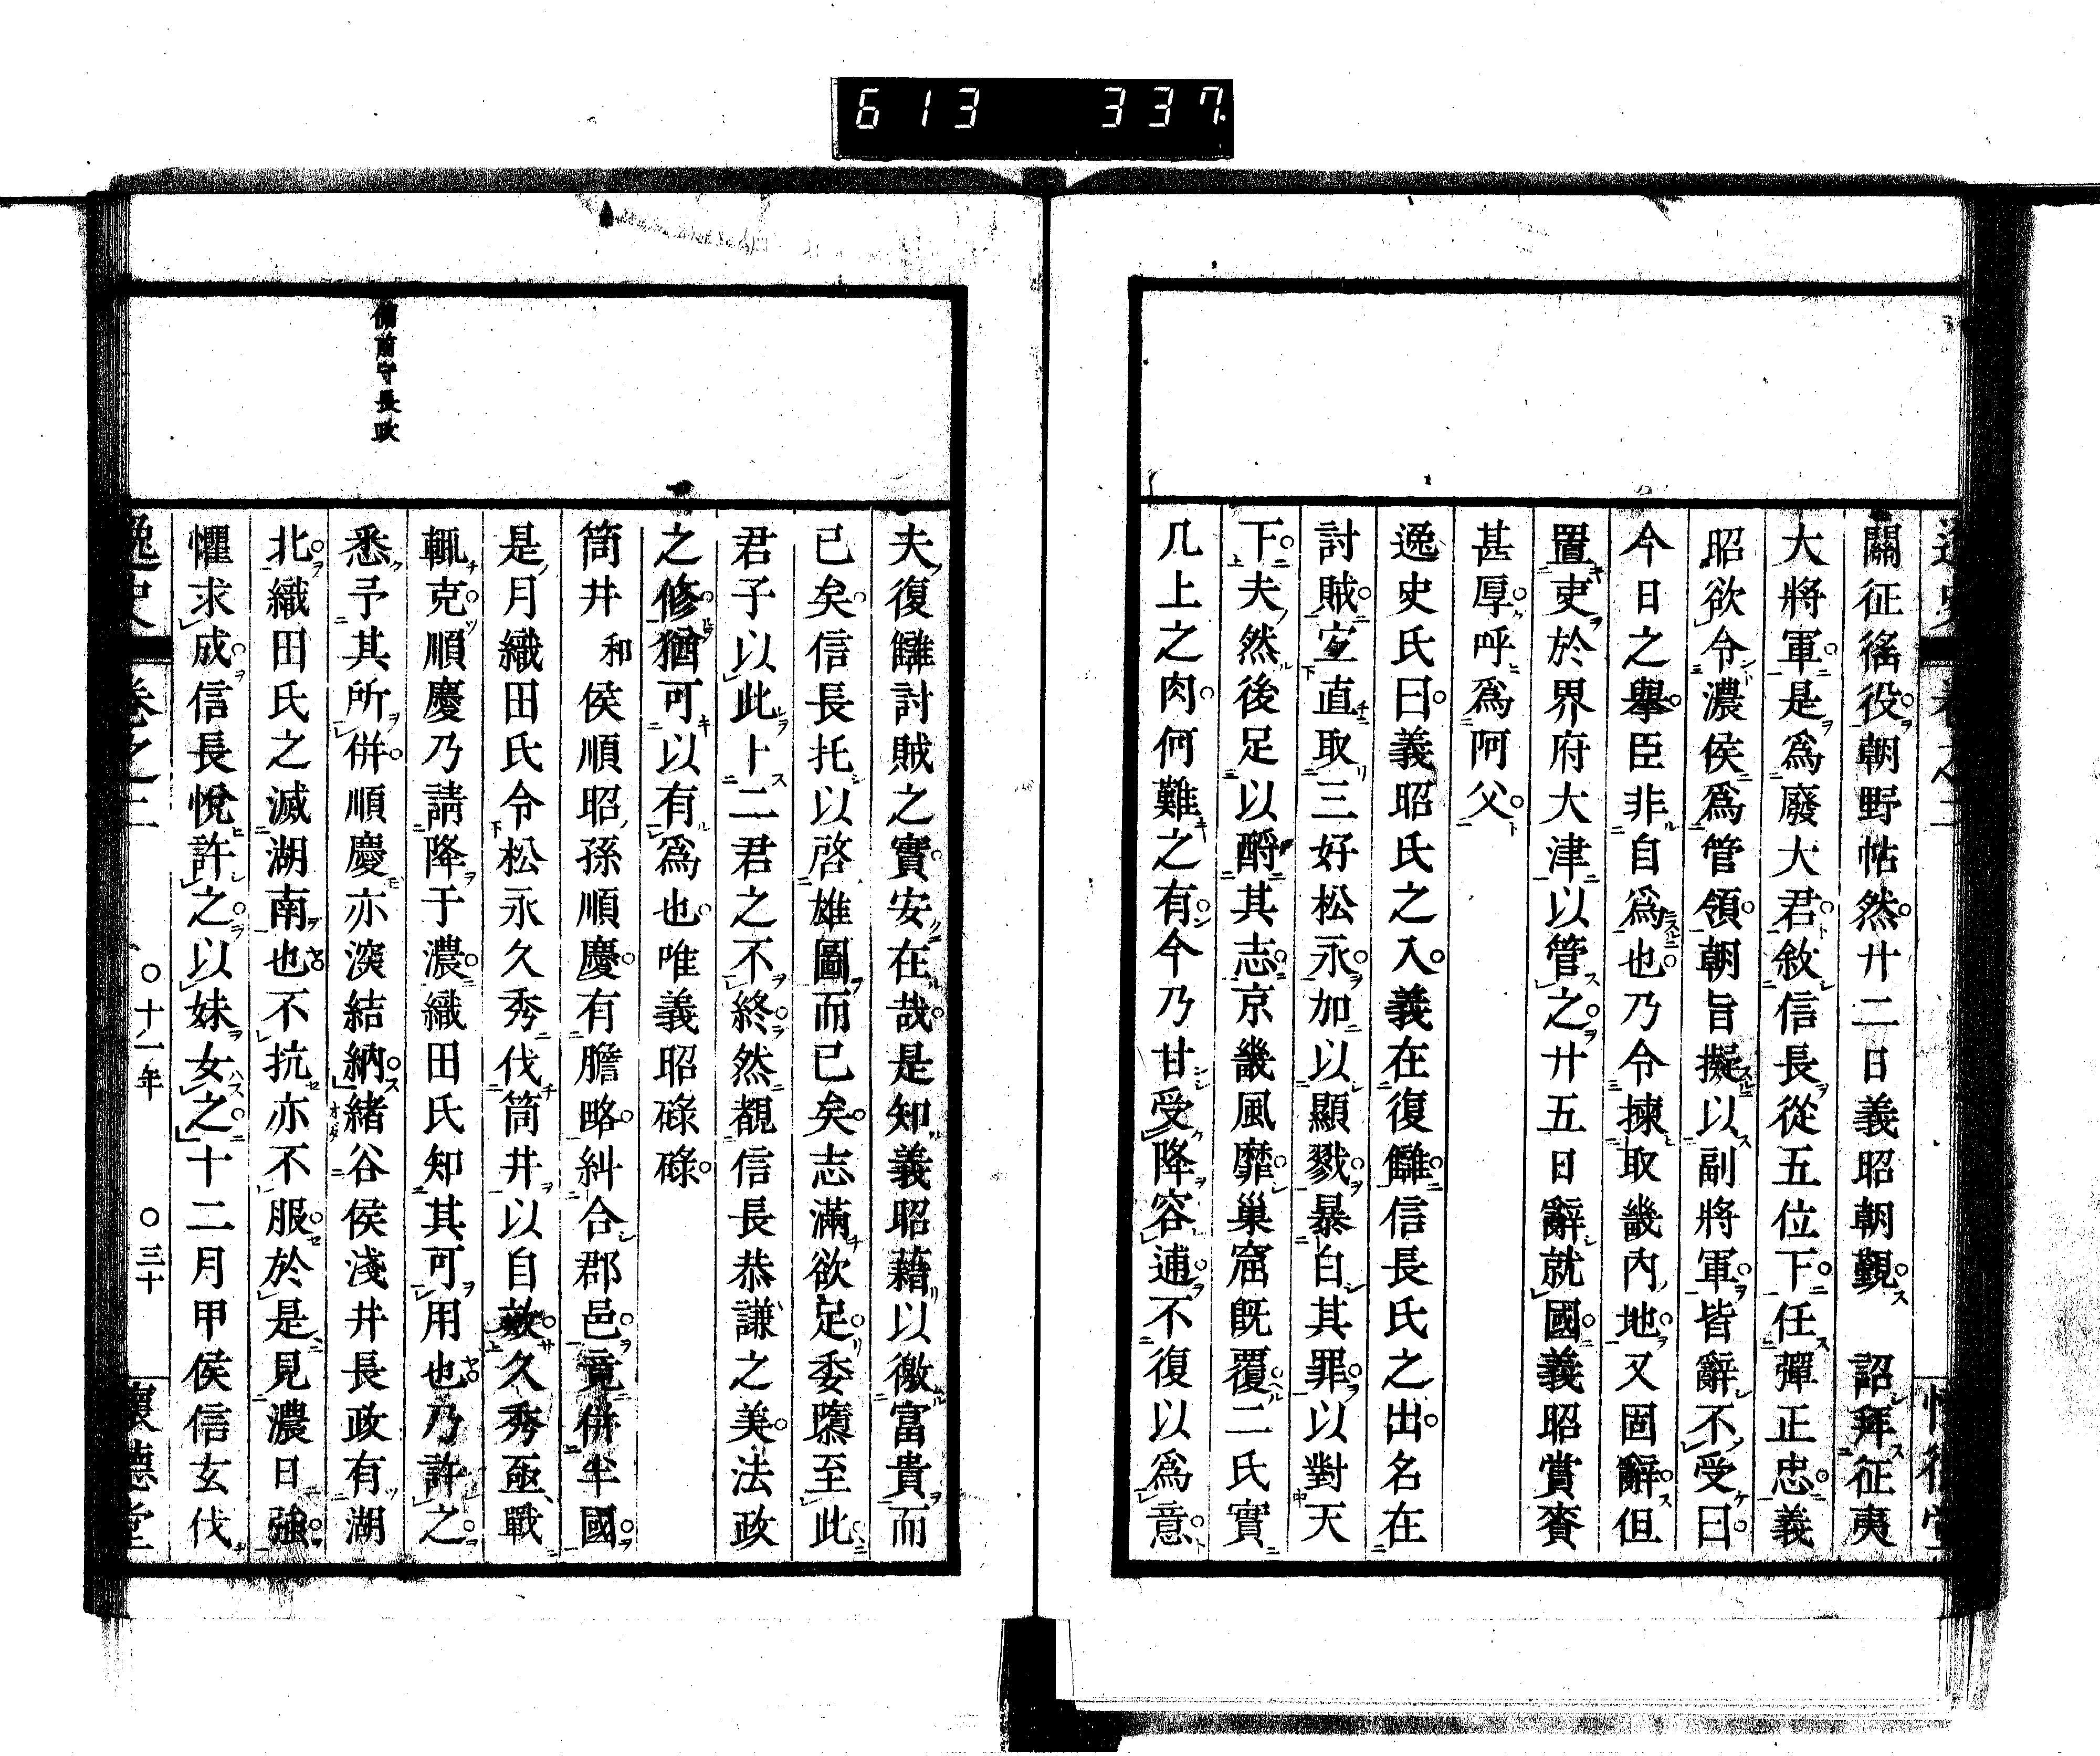 613 337
關征徭役朝野帖然廿二日義昭朝覲 詔拜征夷
大將軍是爲廢大君敘信長從五位下任彈正忠義
昭欲令濃侯爲管領朝旨擬以副將軍皆辭不受曰
今日之擧臣非自爲也乃令揀取畿內地又固辭但
置吏於界府大津以管之廿五日辭就國義昭賞賚
甚厚呼爲阿父
逸史氏曰義昭氏之入義在復讎信長氏之出名在
討賊宜直取三好松永加以顯戮暴白其罪以對天
下夫然後足以酹其志京畿風靡巢窟既覆二氏實
几上之肉何難之有今乃甘受降容逋不復以爲意
夫復讎討賊之實安在哉是知義昭藉以徼富貴而
已矣信長托以啓雄圖而已矣志滿欲足委隳至此
君子以此卜二君之不終然覩信長恭謙之美法政
之修猶可以有爲也唯義昭碌碌
筒井 和 侯順昭孫順慶有膽略糾合郡邑竟併半國
是月織田氏令松永久秀伐筒井以自效久秀亟戰
輒克順慶乃請降于濃織田氏知其可用也乃許之
悉予其所併順慶亦深結納緒谷侯淺井長政有湖
備前守長政
北織田氏之滅湖南也不抗亦不服於是見濃日強
懼求成信長悅許之以妹女之十二月甲侯信玄伐
逸史 卷之二 〇十一年 〇三十 懷德堂